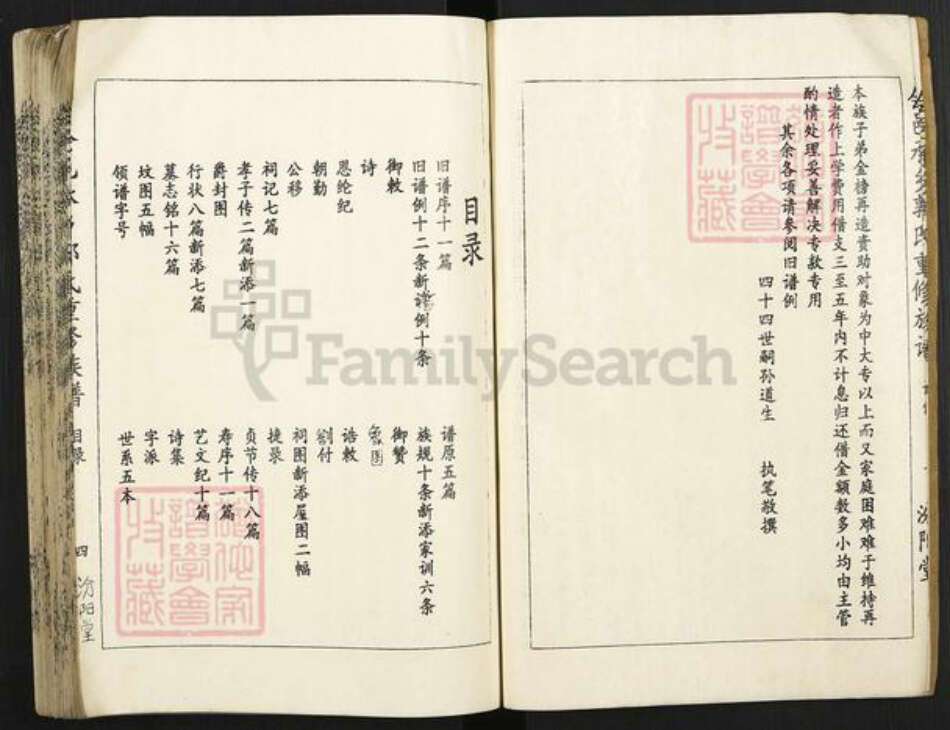 本族子弟金榜再造责助对象为中大专以上而又家庭困难难于维持再
造者作上学费用借支三至五年内不计息归还借金额数多小均由主管
酌情处理妥善解决专款专用
其余各项请参阅旧谱例
四十四世嗣孙道生 执笔敬撰
目录
旧谱序十一篇
谱原五篇
旧谱例十二条新谱例十条
族规十条新添家训六条
御敕
御赞
诗
恩纶纪
诰敕
朝勤
劄付
公移
祠图新添屋图二幅
祠记七篇
捷录
孝子传二篇新添一篇
贞节传十八篇
爵封图
寿序十一篇
行状八篇新添七篇
艺文纪十篇
墓志铭十六篇
诗集
坟图五幅
字派
领谱字号
世系五本
氏重修族谱
目录
四
汾阳堂
郭氏重修族谱
汾阳堂
谱学会
收藏
谱学会
收藏
FamilySearch